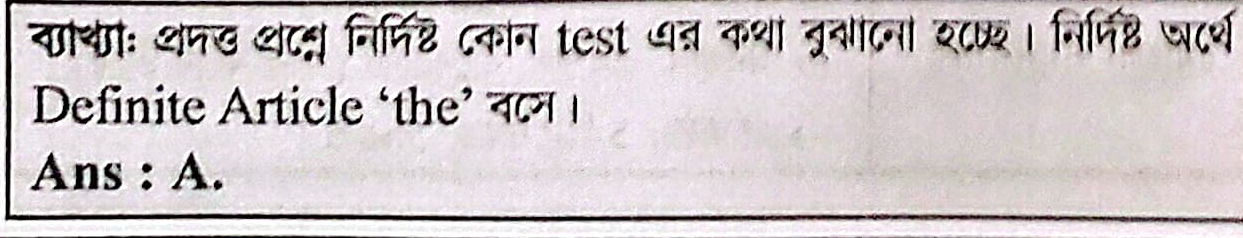 ব্যাখ্যাঃ প্রদত্ত প্রশ্নে নির্দিষ্ট কোন test এর কথা বুঝানো হচ্ছে। নির্দিষ্ট অর্থে
Definite Article ‘the’ বসে।
Ans : A.